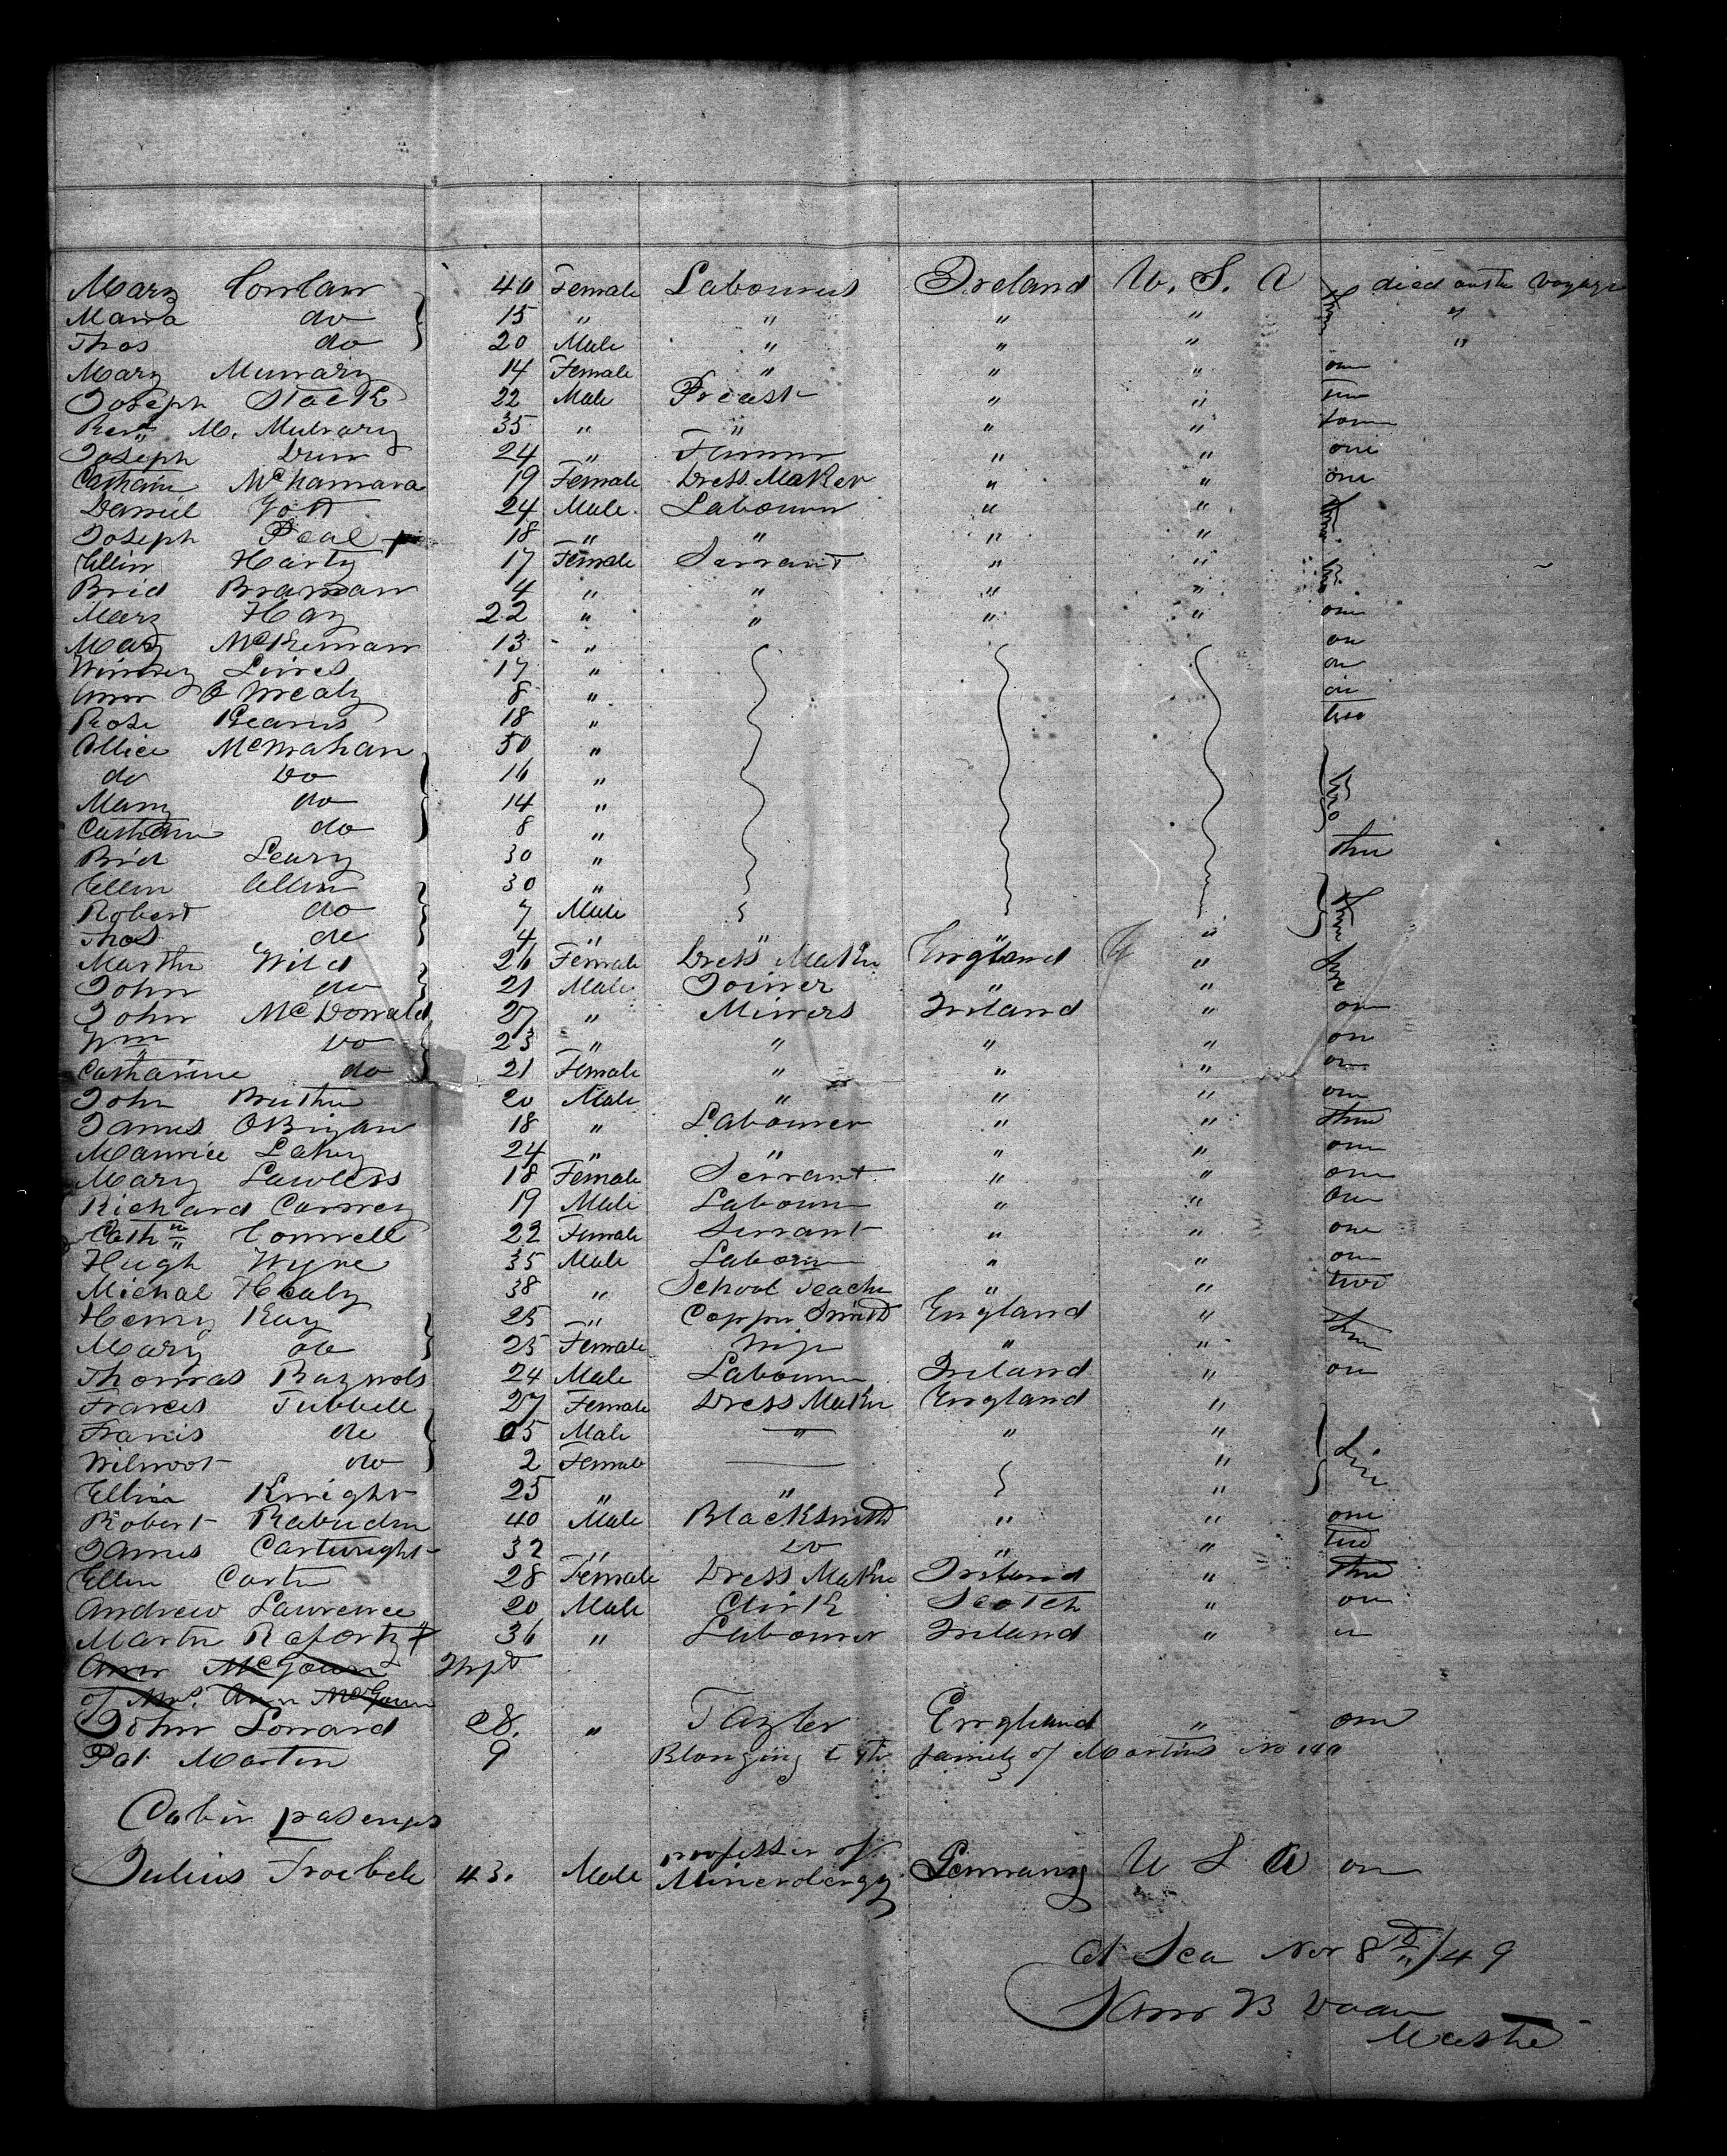 Mary Conlan 40 Female Labourers Ireland U. S. A died on the Voyage
Maria do 15 " " " " three "
Thos do 20 Male " " " "
Mary Murrary 14 Female " " " one
Joseph Stack 22 Male Preast " "
Revd M. Mulrary 35 " " " "
Joseph Drum 24 " Farmer " " one
Catharine McNamara 19 Female Dress Maker " " one
Daniel 24 Male Labourer " "
Joseph Peal 18 " " " "
Ellin Harty 17 Female Servant " "
Brid Brannan 4 " " " "
Mary Hay 22 " " " " one
Mary McKernan 13 " on
Winney Lines 17 " on
Ann O Nealy 8 " on
Rose Kearns 18 " two
Allice McMahan 50 "
do Do 16 " two
Mary do 14 "
Catharn do 8 "
Brid Leary 30 " three
Ellen Allen 30 "
Robert do 7 Male three
Thos do 4 " " " "
Martha Wild 26 Female Dress Maker England "
John do 21 Male Joiner " "
John McDonald 27 " Miners Ireland " on
Wm Do 23 " " " " on
Catharine do 21 Female " " " on
John 20 Male " " " one
James OBryan 18 " Labourer " " three
Maurice Lahey 24 " " " " one
Mary Lawless 18 Female Servant " " one
Richard Carney 19 Male Labourer " " one
Cathn Connell 22 Female Servant " " one
Hugh Wyne 35 Male Laborer " " one
Michal Healy 38 " School Teacher " " two
Henry Kay 25 " Copper Smith England " three
Mary do 25 Female Wife " "
Thomas Raynols 24 Male Labourer Ireland " on
Frances Tubbell 27 Female Dress Maker England "
Francis do 05 Male " " "
Wilmoot do 2 Female "
Ellin Knight 25 " " "
Robert 40 Male Blacksmith " " one
James Cartwright 32 " Do " " two
Ellen Carter 28 Female Dress Maker Ireland " three
Andrew Lawrence 20 Male Clirk Scotch " on
Martin Raferty 36 " Labourer Ireland " "
Ann McGown
of Mrs. Ann McGown
John Lonard 28. " Tayler England " one
Pat Martin 9 Blonging to the family of Martins No 140
Cabin pasengs
Julius Froebele 43. Male professer of Minerolergy Germany U S A on
At Sea Nov 8th /49
Saml B Doan
Master